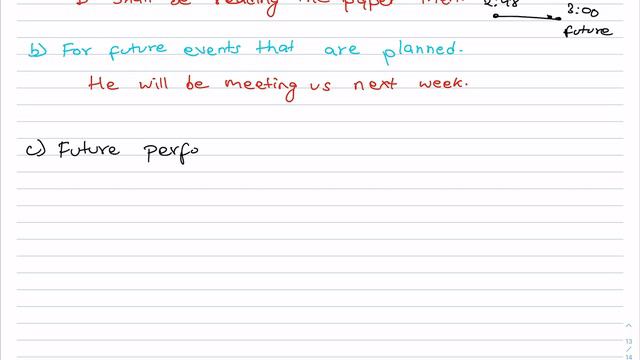 shall be reading the paper then.
2:48
3:00
future
b) For future events that are planned.
He will be meeting us next week.
c) Future perfo
13
/
14